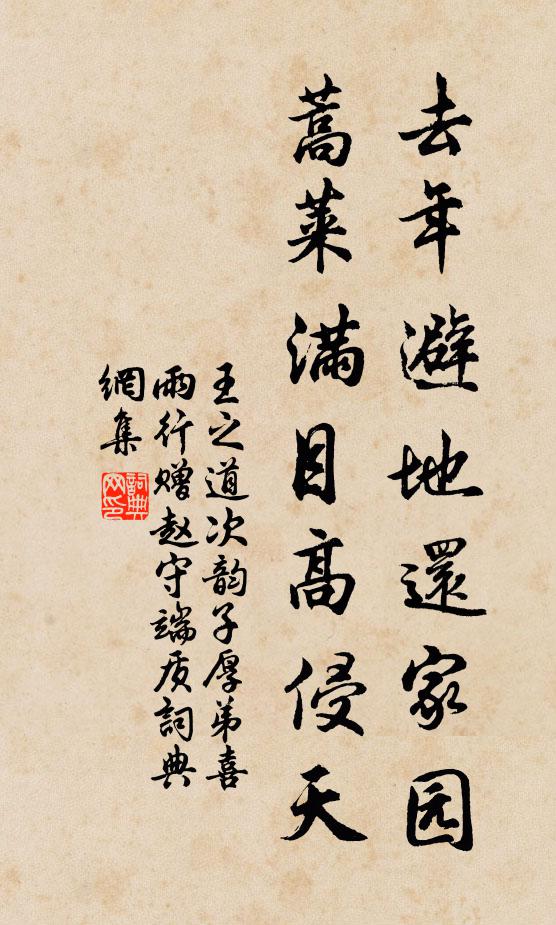 去年避地還家园
蒿莱满目高侵天
王之道次韵子厚弟喜
雨行赠赵守端质詞典
網集
詞典网印